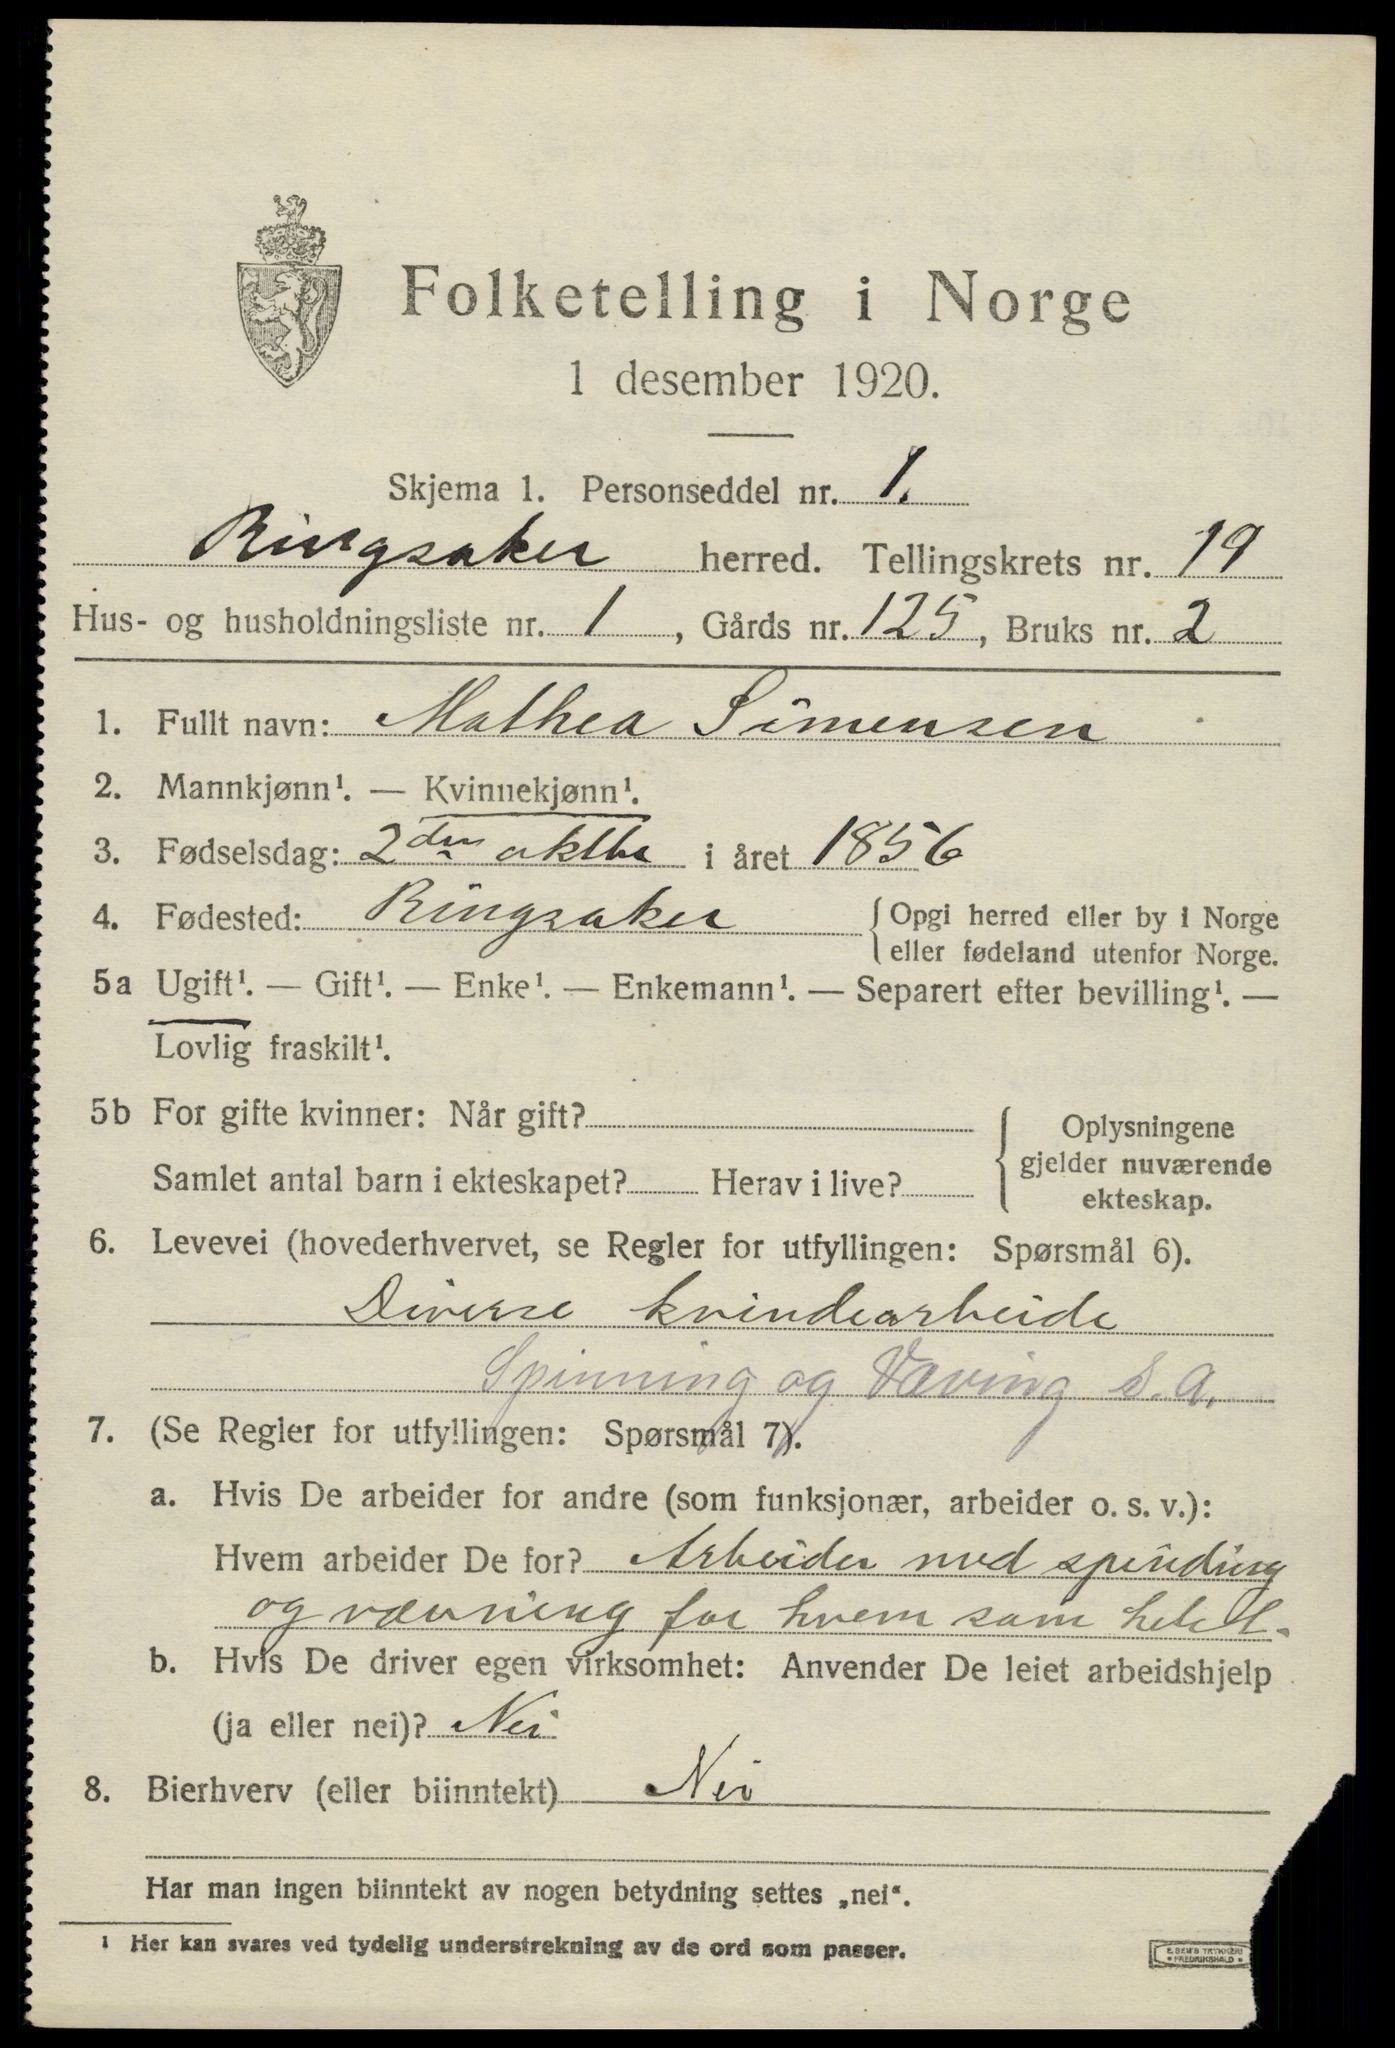 Folketelling i Norge
1 desember 1920.
Skjema 1. Personseddel nr. 1.
Ringsaker herred. Tellingskrets nr. 19
Hus- og husholdningsliste nr. 1, Gårds nr. 125, Bruks nr. 2
1. Fullt navn: Mathea Simensen
2. Mannkjønn¹. — Kvinnekjønn¹.
3. Fødselsdag: 2den oktbr i året 1856
4. Fødested: Ringsaker { Opgi herred eller by i Norge
eller fødeland utenfor Norge.
5a Ugift¹. — Gift¹. — Enke¹. — Enkemann¹. — Separert efter bevilling¹. —
Lovlig fraskilt¹.
5b For gifte kvinner: Når gift? { Oplysningene
gjelder nuværende
Samlet antal barn i ekteskapet? Herav i live?
ekteskap.
6. Levevei (hovederhvervet, se Regler for utfyllingen: Spørsmål 6).
Diverse kvindearbeide
Spinning og Væving s.a.
7. (Se Regler for utfyllingen: Spørsmål 7).
a. Hvis De arbeider for andre (som funksjonær, arbeider o. s. v.):
Hvem arbeider De for? Arbeider med spinding
og vævning for hvem som helst.
b. Hvis De driver egen virksomhet: Anvender De leiet arbeidshjelp
(ja eller nei)? Nei
8. Bierhverv (eller biinntekt) Nei
Har man ingen biinntekt av nogen betydning settes „nei“.
¹ Her kan svares ved tydelig understrekning av de ord som passer.
E. SEM'S TRYKKERI
* FREDRIKSHALD *